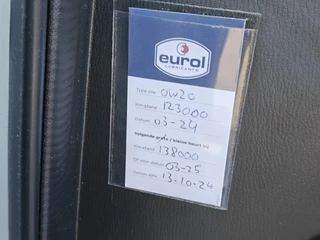 eurol
LUBRICANTS
Type olie 0W20
Km-stand 123000
Datum 03-24
Volgende grote / kleine beurt bij
Km-stand 138000
Of voor datum 03-25
Datum APK 13-10-24